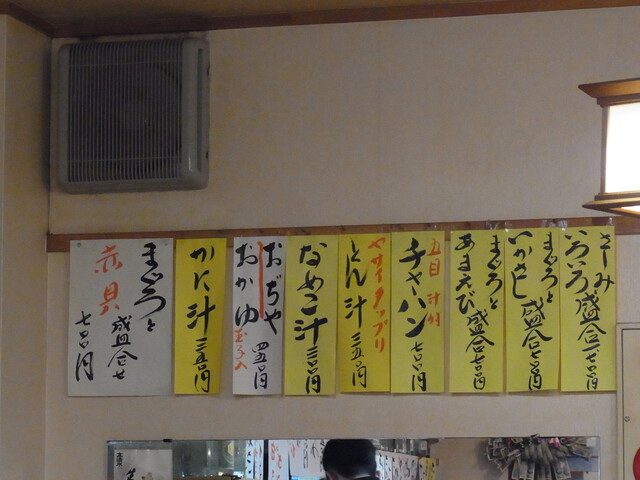 さしみ
いろいろ盛合 七百円
まぐろと
いかさし盛合七百円
まぐろと
あまえび盛合七百円
五目 汁付
チャハン 七百円
ヤサイタップリ
とん汁 三五〇円
なめこ汁 三〇〇円
おぢや
おかゆ 玉子入
四五〇円
かに汁 三五〇円
まぐろと
赤貝 盛合せ
七〇〇円